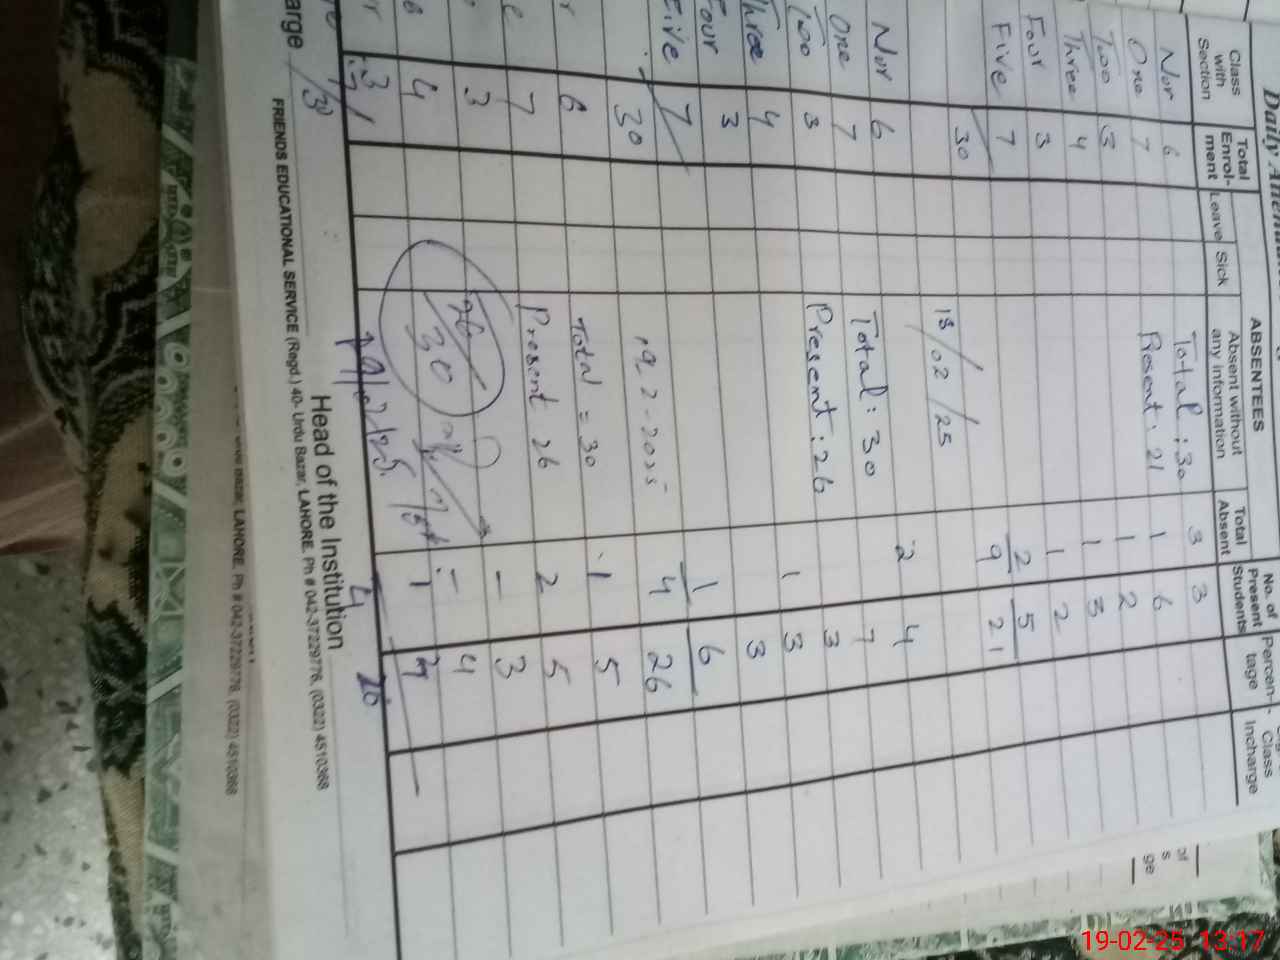 Daily
Class with Section
Total Enrol- ment
ABSENTEES
Leave
Sick
Absent without any information
Total Absent
No. of Present Students
Percen- tage
Class Incharge
Nur 6 Total : 30 3 3
One 7 Present : 21 1 6
Two 3 1 2
Three 4 1 3
Four 3 1 2
Five 7 2 5
30 9 21
18/02/25
Nur 6 Total : 30 2 4
One 7 Present : 26 7
Two 3 3
Three 4 1 3
Four 3 3
Five 7 1 6
30 19.2-2025 4 26
6 Total = 30 1 5
7 Present 26 2 5
3 - 3
4 26/30 - 4
3 1
19/2/25
4 26
Head of the Institution
FRIENDS EDUCATIONAL SERVICE (Regd.) 40- Urdu Bazar, LAHORE. Ph # 042-37229776, (0322) 4510368
LAHORE. Ph # 042-37229776, (0322) 4510368
19-02-25 13:17